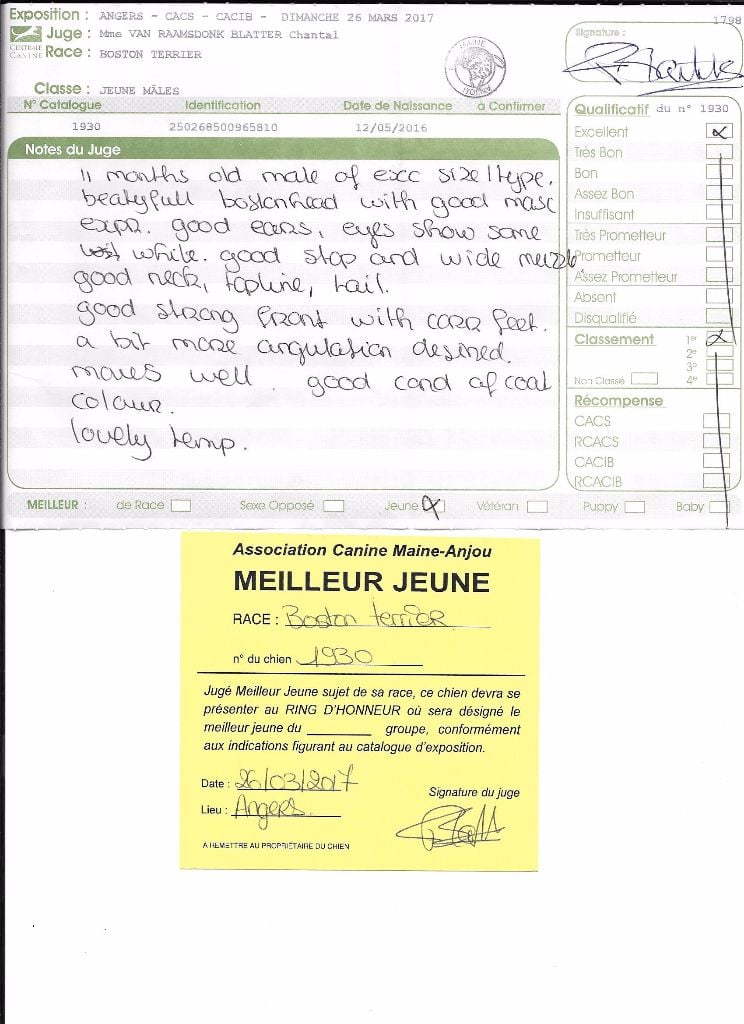 Exposition : ANGERS - CACS - CACIB - DIMANCHE 26 MARS 2017
1798
Juge : Mme VAN RAAMSDONK BLATTER Chantal
Signature :
CENTRALE CANINE
Race : BOSTON TERRIER
MAINE
Classe : JEUNE MÂLES
N° Catalogue Identification Date de Naissance à Confirmer
1930 250268500965810 12/05/2016
Notes du Juge
11 months old male of exc size/type.
beatyfull bostonhead with good masc
expr. good ears, eyes show some
white. good stop and wide muzzle
good neck, topline, tail.
good strong front with corr feet.
a bit more angulation desired.
moves well. good cond of coat
colour.
lovely temp.
Qualificatif du n° 1930
Excellent x
Très Bon
Bon
Assez Bon
Insuffisant
Très Prometteur
Prometteur
Assez Prometteur
Absent
Disqualifié
Classement 1er x
2e
3e
Non Classé 4e
Récompense
CACS
RCACS
CACIB
RCACIB
MEILLEUR : de Race Sexe Opposé Jeune x Vétéran Puppy Baby
Association Canine Maine-Anjou
MEILLEUR JEUNE
RACE : Boston terrier
n° du chien 1930
Jugé Meilleur Jeune sujet de sa race, ce chien devra se
présenter au RING D'HONNEUR où sera désigné le
meilleur jeune du ________ groupe, conformément
aux indications figurant au catalogue d'exposition.
Date : 26/03/2017
Signature du juge
Lieu : Angers
A REMETTRE AU PROPRIÉTAIRE DU CHIEN